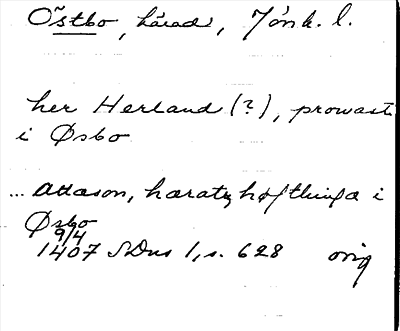 Östbo, härad, Jönk. l.
her Herland (?), prowast
i Øsbo
... attason, haratzhøfthinga i
Øsbo
9/4
1407 SDns 1, s. 628 orig